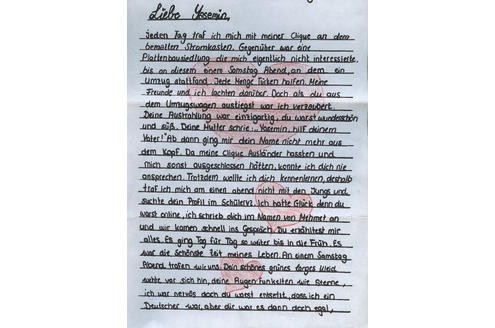 Liebe Yasemin,
Jeden Tag traf ich mich mit meiner Clique an dem
bemalten Stromkasten. Gegenüber war eine
Plattenbausiedlung die mich eigentlich nicht interessierte,
bis an diesem einem Samstag Abend, an dem ein
Umzug stattfand. Jede Menge Türken halfen. Meine
Freunde und ich lachten darüber. Doch als du aus
dem Umzugswagen austiegst war ich verzaubert.
Deine Austrahlung war einzigartig, du warst wunderschön
und süß. Deine Mutter schrie: "Yasemin, hilf deinem
Vater!" Ab dann ging mir dein Name nicht mehr aus
dem Kopf. Da meine Clique Ausländer hassten und
mich sonst ausgeschlossen hätten, konnte ich dich nie
ansprechen. Trotzdem wollte ich dich kennenlernen, deshalb
traf ich mich am einen abend nicht mit den Jungs und
suchte dein Profil im SchülerVz. Ich hatte Glück, denn du
warst online, ich schrieb dich im Namen von Mehmet an
und wir kamen schnell ins Gespräch. Du erzähltest mir
alles. Es ging Tag für Tag so weiter bis in die Früh. Es
war die Schönste Zeit meines Leben. An einem Samstag
Abend trafen wir uns. Dein schönes grünes langes Kleid
wehte vor sich hin, deine Augen Funkelten wie Sterne,
ich war nervös doch du warst entsetzt, dass ich ein
Deutscher war, aber dir war es dann doch egal,